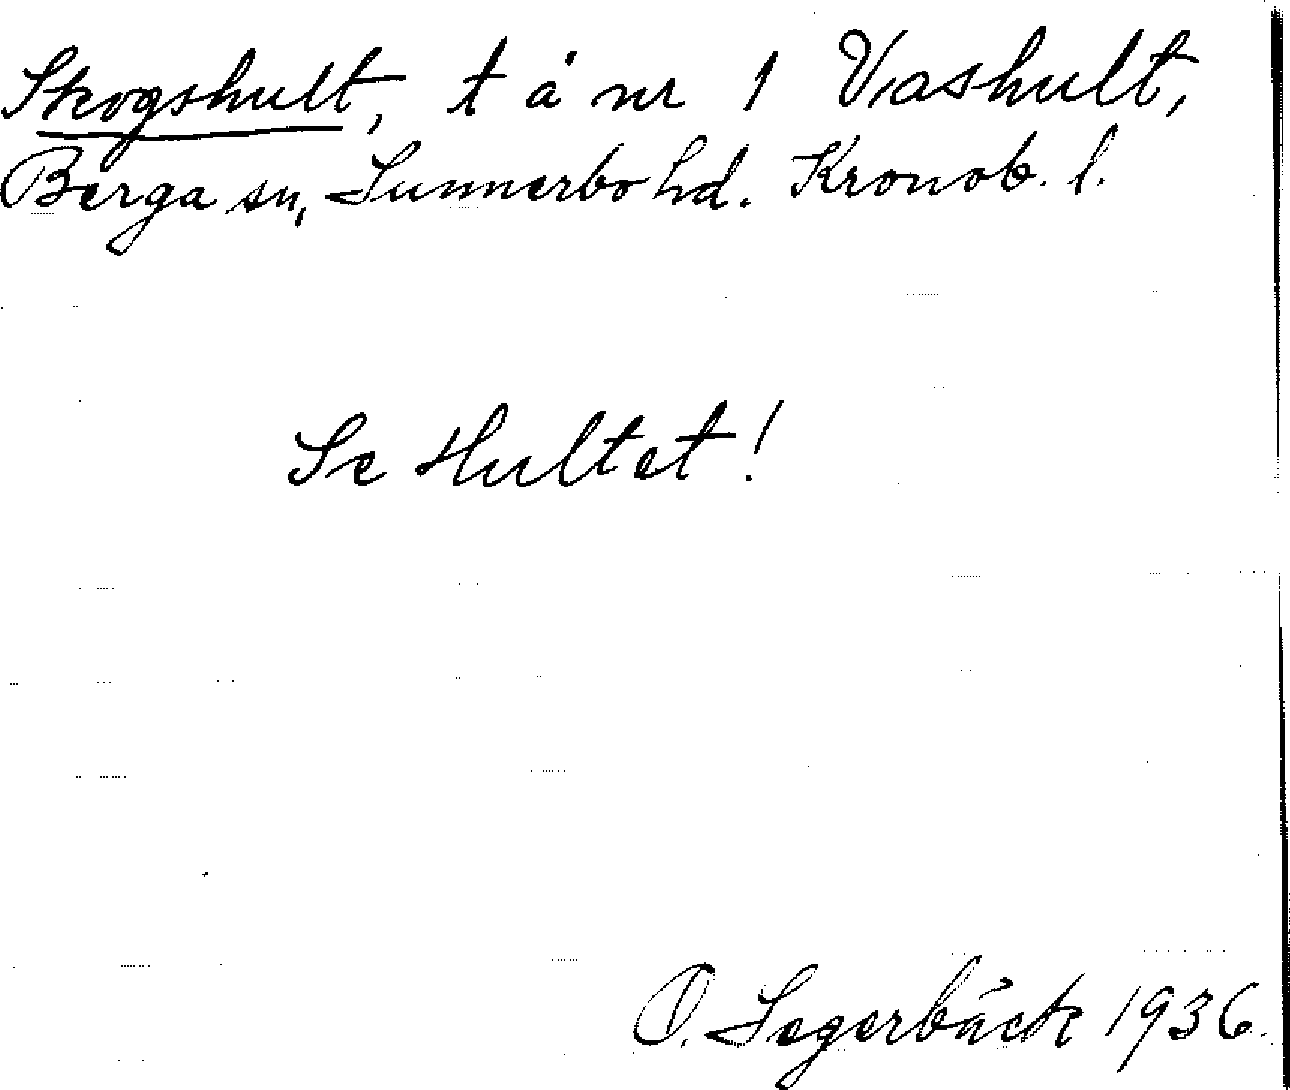 Skogshult, t å nr 1 Vashult,
Berga sn, Sunnerbo hd. Kronob. l.
Se Hultet!
O. Segerbäck 1936.